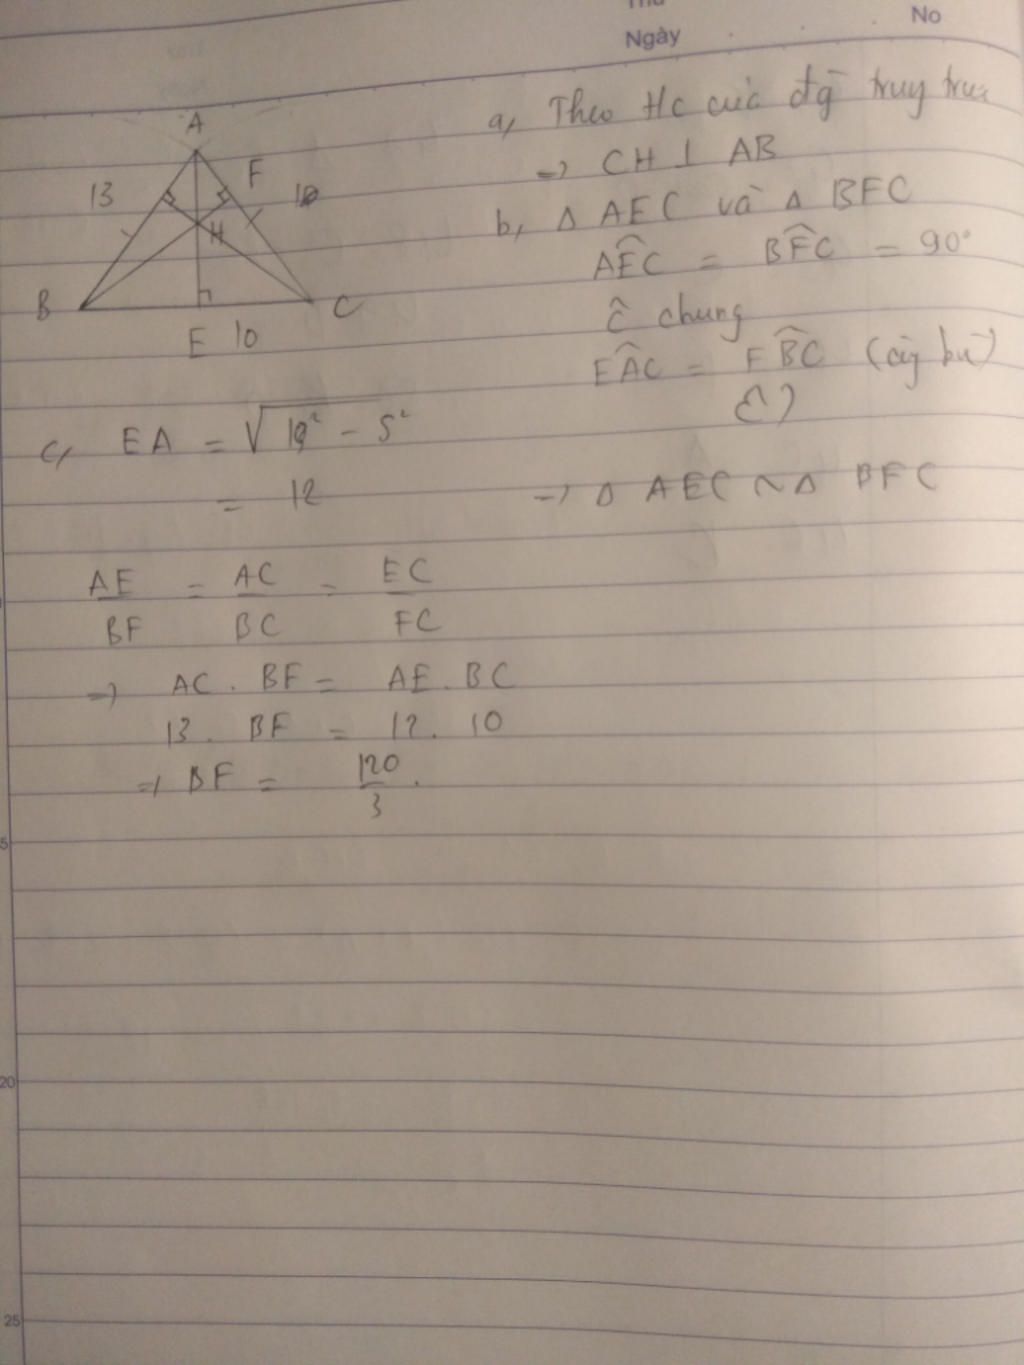 Ngày
No
A
13
F
H
B
C
E 10
a, Theo t/c các đg
→ CH ⊥ AB
b, Δ AEC và Δ BFC
AÊC = BF̂C = 90°
Ĉ chung
EÂC = FB̂C (cùng bù
Ĉ)
→ Δ AEC ~ Δ BFC
c, EA = √13² - 5²
= 12
AE/BF = AC/BC = EC/FC
→ AC . BF = AE . BC
13 . BF = 12 . 10
→ BF = 120/3 .
5
20
25